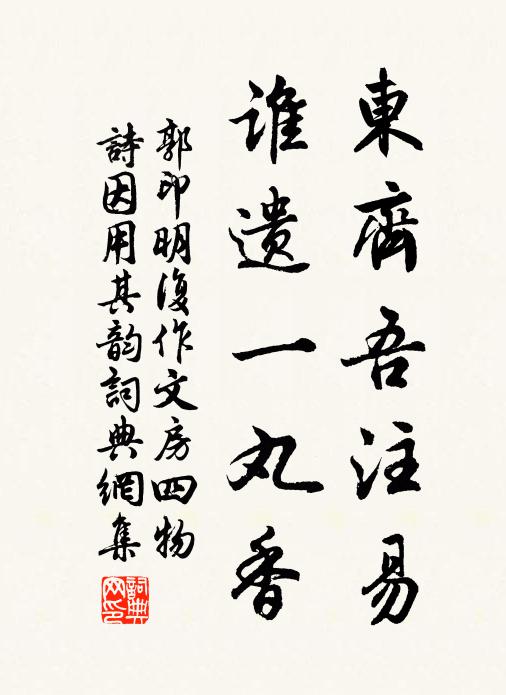 東齊吾注易
誰遺一丸香
郭印明復作文房四物
詩因用其韵詞典網集
詞典网印